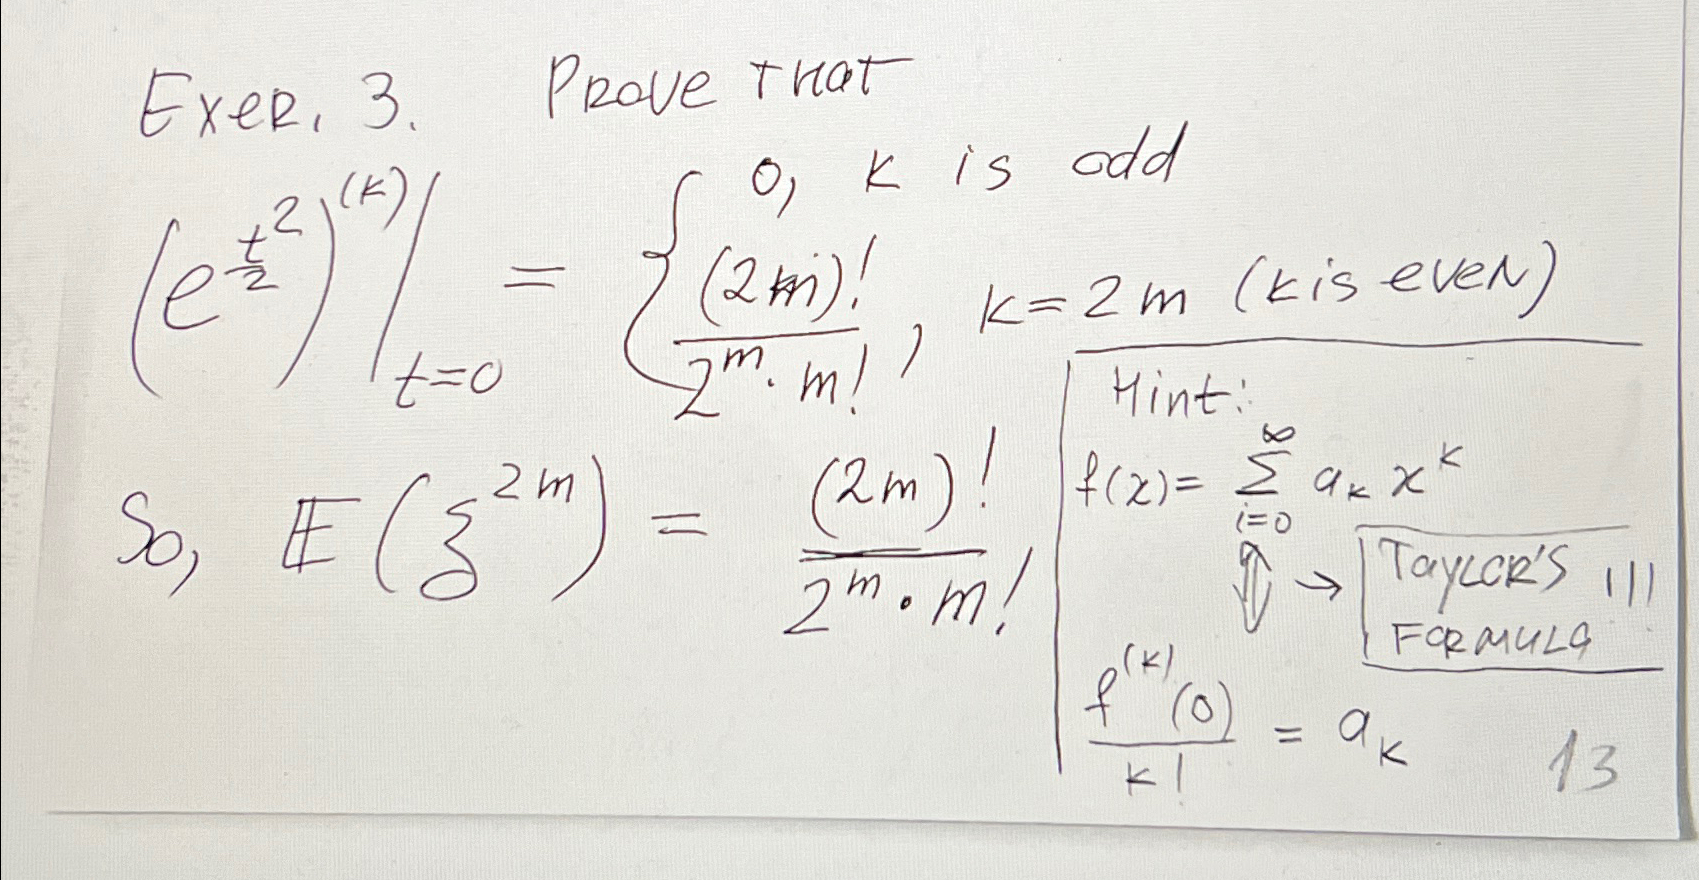 Exer. 3. Prove that
(e^{t²/2})^{(k)} |_{t=0} = { 0, k is odd
(2m)! / (2^m · m!), k=2m (k is even)
So, 𝔼(ξ^{2m}) = (2m)! / (2^m · m!)
Hint:
f(x) = ∑_{i=0}^{∞} a_k x^k
⇕ → Taylor's !!!
Formula
f^{(k)}(0) / k! = a_k
13